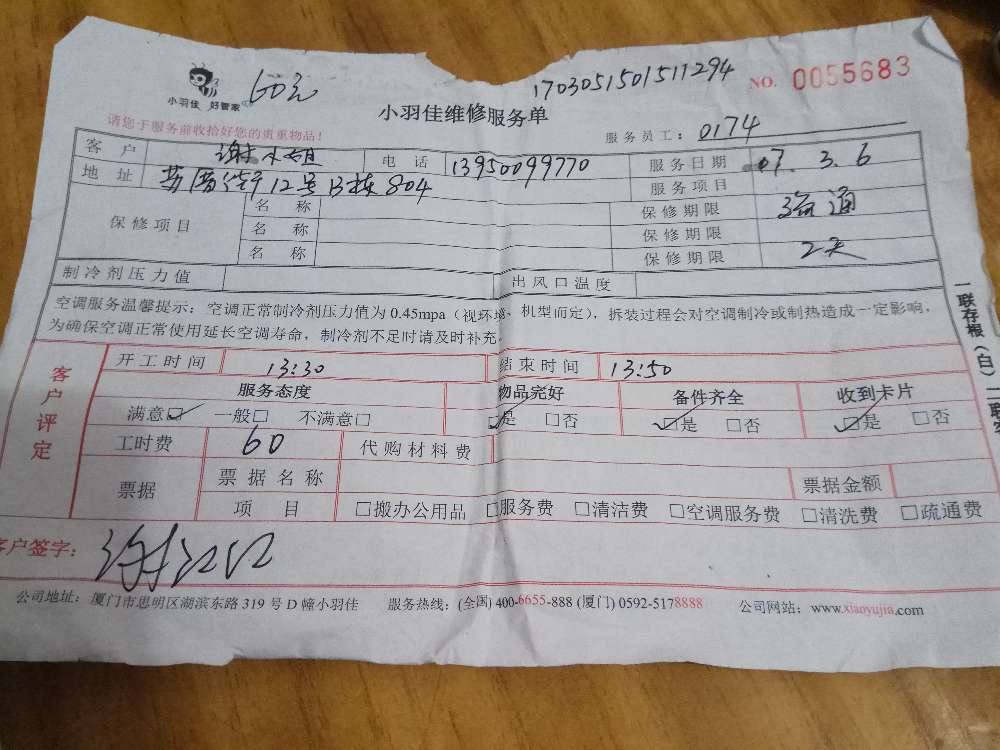 60元 1703051501511294 NO. 0055683
小羽佳 好管家
小羽佳维修服务单
请您于服务前收拾好您的贵重物品！ 服务员工：0174
客户 谢小姐 电话 13950099770 服务日期 07.3.6
地址 12号B栋804 服务项目
保修项目 名称 保修期限 疏通
名称 保修期限
名称 保修期限 2天
制冷剂压力值 出风口温度
空调服务温馨提示：空调正常制冷剂压力值为0.45mpa（视环境、机型而定），拆装过程会对空调制冷或制热造成一定影响，
为确保空调正常使用延长空调寿命，制冷剂不足时请及时补充。
客户评定
开工时间 13:30 结束时间 13:50
服务态度 物品完好 备件齐全 收到卡片
满意☑ 一般□ 不满意□ ☑是 □否 ☑是 □否 ☑是 □否
工时费 60 代购材料费
票据 票据名称 票据金额
项目 □搬办公用品 □服务费 □清洁费 □空调服务费 □清洗费 □疏通费
客户签字：
公司地址：厦门市思明区湖滨东路319号D幢小羽佳 服务热线：(全国)400-6655-888 (厦门)0592-5178888 公司网站：www.xiaoyujia.com
一联存根（白）二联